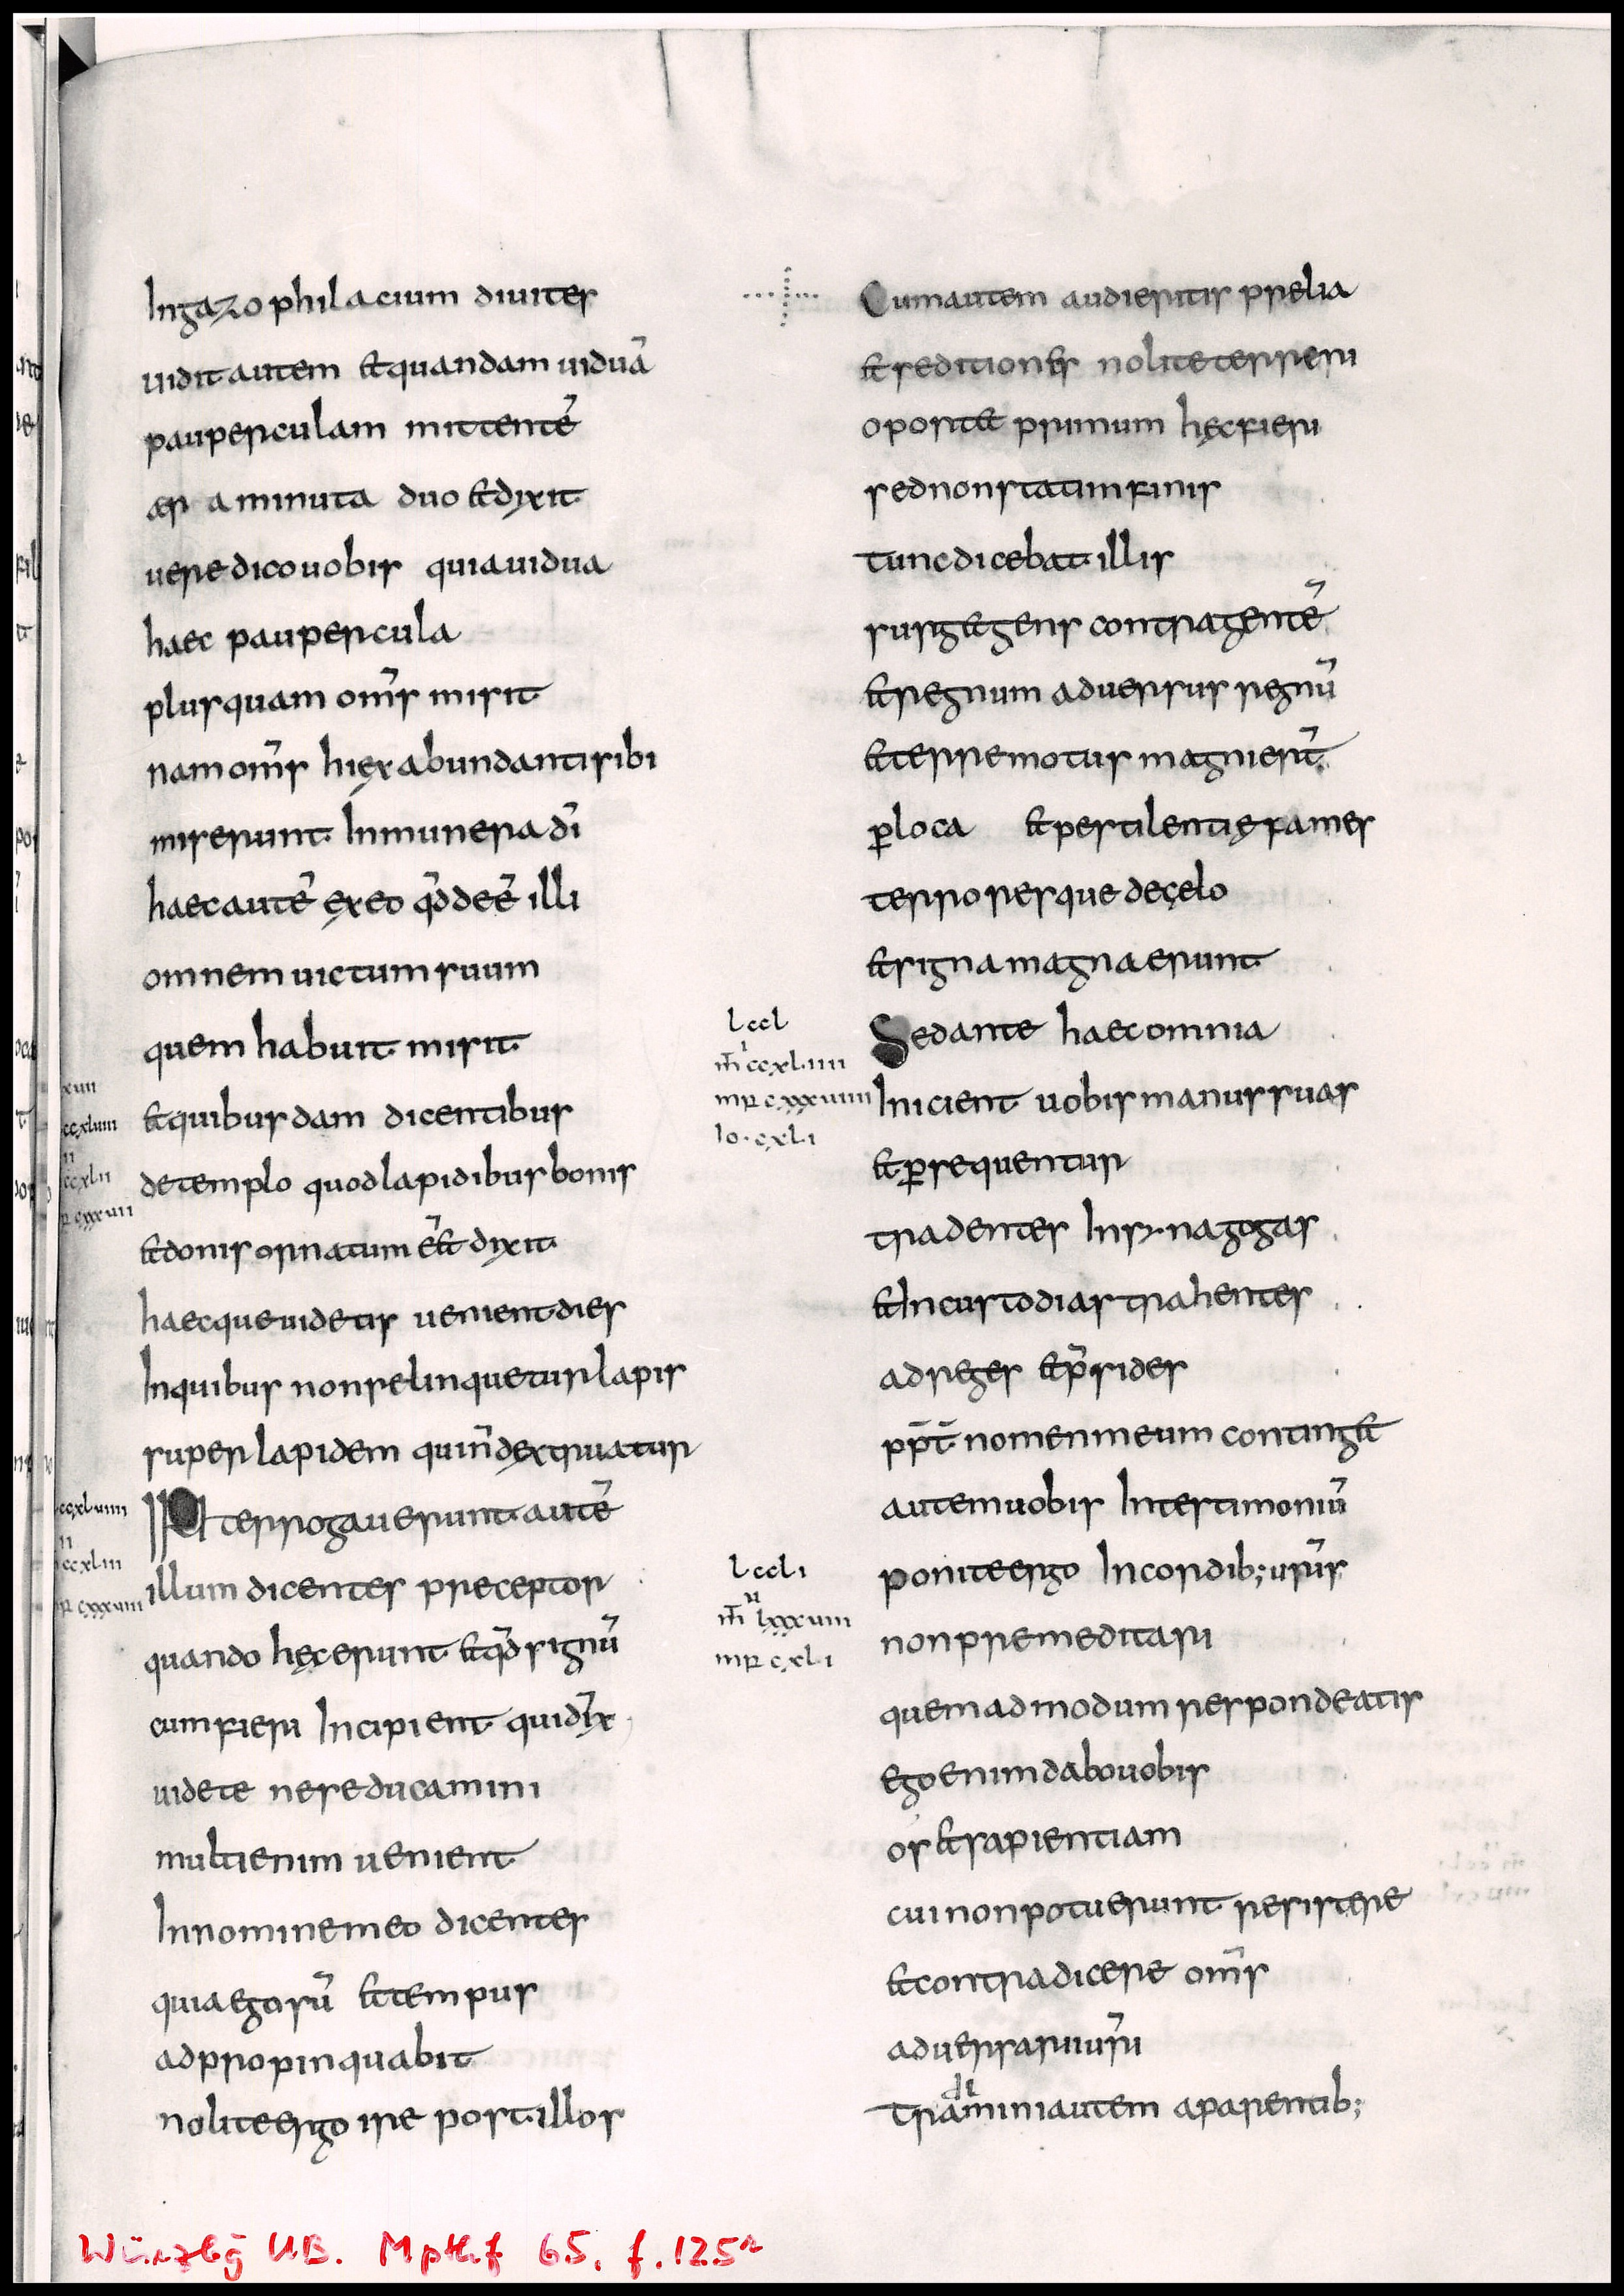 Ingazophilacium diuites
uidit autem et quandam uiduā
pauperculam mittentē
aera minuta duo et dixit
uere dico uobis quia uidua
haec paupercula
plus quam om̄s misit
nam om̄s hi ex abundanti sibi
miserunt In munera dī
haec autē ex eo qd̄ deē illi
omnem uictum suum
quem habuit misit
et quibusdam dicentibus
de templo quod lapidibus bonis
et donis ornatum ēēt dixit
haec que uidetis uenient dies
In quibus non relinquetur lapis
super lapidem qui n̄ dextruatur
Interrogauerunt autē
illum dicentes preceptor
quando hęc erunt et qd̄ signū
cum fieri Incipient qui dix̄
uidete ne seducamini
multi enim uenient
In nomine meo dicentes
quia ego sū et tempus
adpropinquabit
nolite ergo ire post illos
Cum autem audieritis prelia
et seditiones nolite terreri
oportet primum hęc fieri
sed non statim finis
tunc dicebat illis
surget gens contra gentē
et regnum aduersus regnū
et terre motus magni er̄t
p̱ loca et pestilentię fames
terroresque de cęlo
et signa magna erunt
lccl
m̄ ccxliiii
mr cxxxuiiii
io·cxli
Sed ante haec omnia
Inicient uobis manus suas
et p̱sequentur
tradentes In synagogas
et In custodias trahentes
ad reges et p̄sides
pp̄t̄ nomen meum continget
autem uobis In testimoniū
lccli
m̄ lxxxuiii
mr cxli
ponite ergo In cordib; ur̄is
non premeditari
quemadmodum respondeatis
ego enim dabo uobis
os et sapientiam
cui non potuerunt resistere
et contradicere om̄s
aduersarii ur̄i
de
tramini autem a parentib;
Würzbg UB. Mpthf 65, f.125r